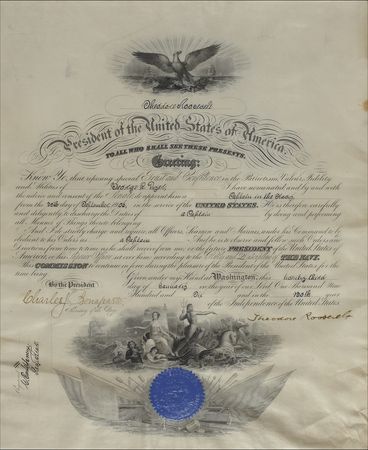 Theodore Roosevelt
President of the United States of America.
TO ALL WHO SHALL SEE THESE PRESENTS,
Greeting:
Know Ye, that reposing special Trust and Confidence in the Patriotism, Valor, Fidelity
and Abilities of George P. I have nominated and by and with
the advice and consent of the Senate do appoint him a Captain in the Navy
from the day of September 1905, in the service of the UNITED STATES. He is therefore carefully
and diligently to discharge the duties of a Captain by doing and performing
all Manner of Things thereto belonging.
And I do strictly charge and require all Officers, Seamen and Marines, under his Command to be
obedient to his Orders as a Captain And he is to observe and follow such Orders and
Directions, from time to time as he shall receive from me, or the future PRESIDENT of the United States of
America, or his Superior Officer set over him, according to the THE NAVY.
This COMMISSION to continue in force during the pleasure of the President of the United States for the
time being.
Given under my Hand at Washington, this
day of January in the year of our Lord One Thousand Nine
Hundred and Six and in the 130th year
of the Independence of the United States.
By the President
Charles J. Bonaparte
Secretary of the Navy.
Theodore Roosevelt